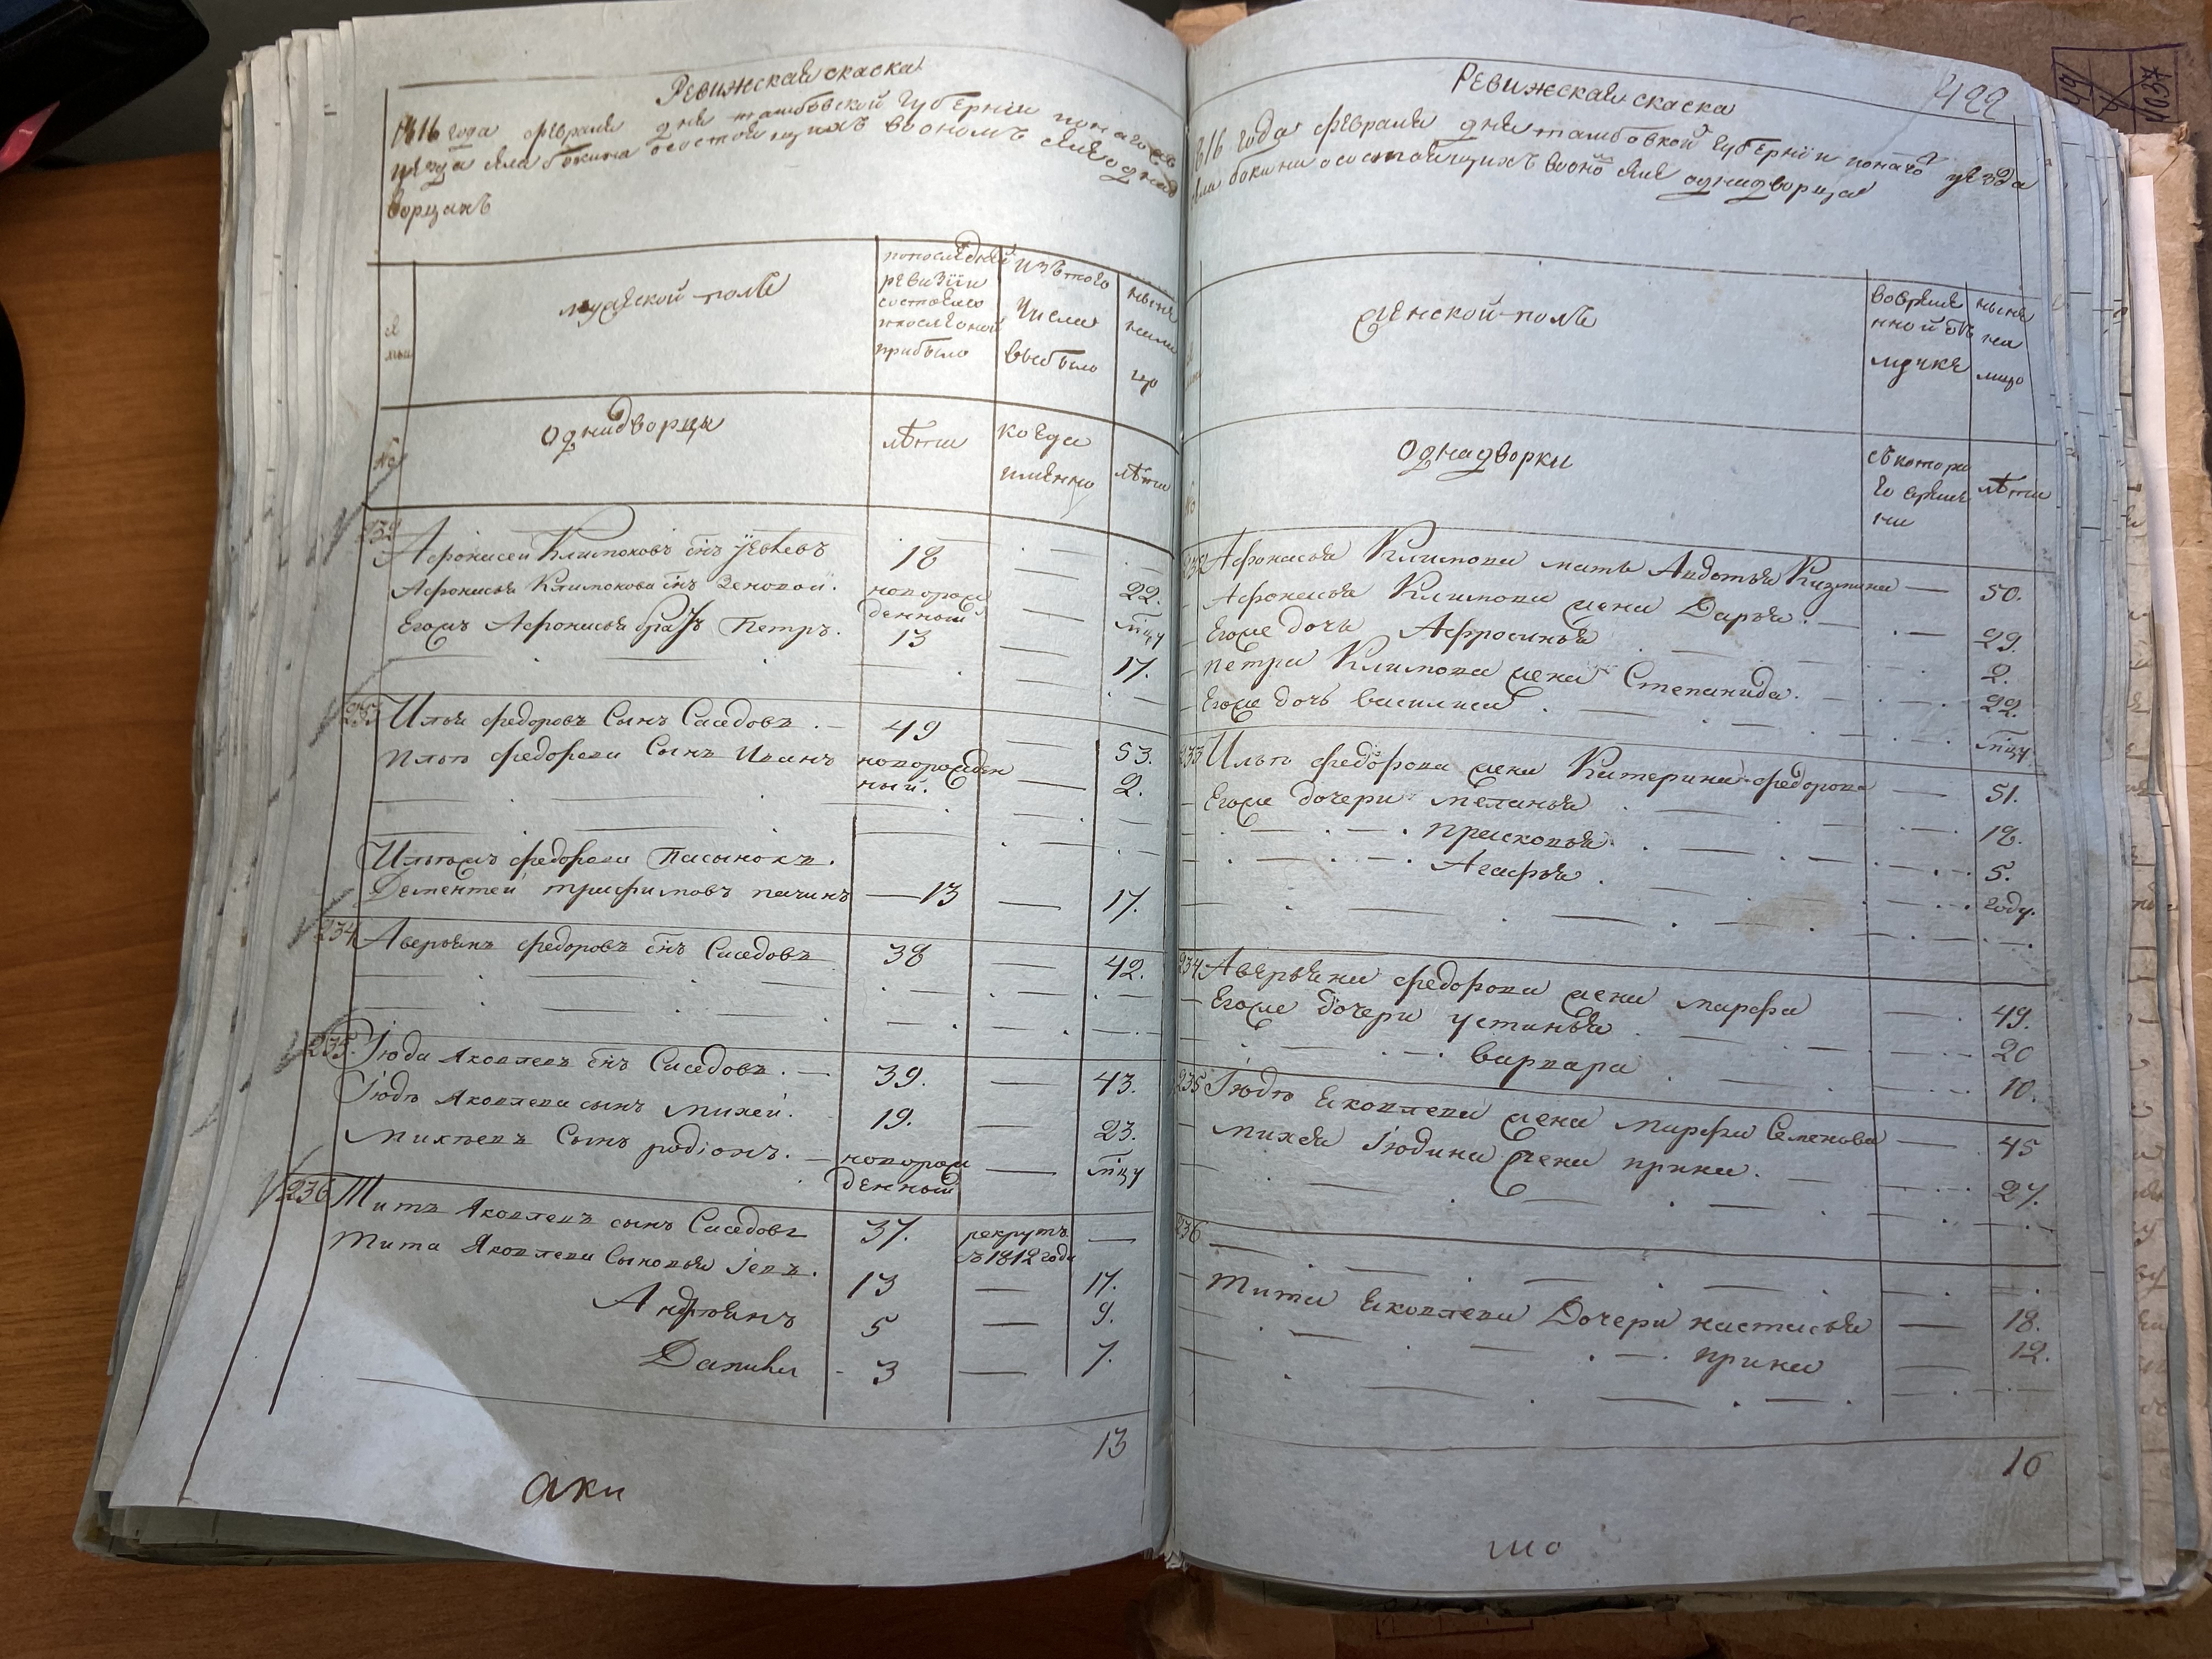 Ревижская скаска
1816 года февраля дня тамбовской губернии
уезда села бокина о состоящихъ во ономъ селе однад
ворцахъ
мужской полъ
по последней
ревизии
состояло
и после оной
прибыло
изътого
числа
выбыло
ныне
на ли
цо
Однадворцы
лѣта
когда
именно
лѣта
№
232 Афонасей Климоновъ снъ
18
Афонасья Климонова снъ Зеновей.
новорож
денный
22.
Егожъ Афонасья братъ Петръ.
13
мцу
17.
233 Илья федоровъ Сынъ Саседовъ.
49
53.
Ильи федорова Сынъ Иванъ
новорожден
ный.
2.
Ильинъ федорова Пасынокъ.
Дементей трифимовъ
13
17.
234 Аверьянъ федоровъ снъ Саседовъ
38
42.
235. Июда Яковлевъ снъ Саседовъ.
39.
43.
Июды Яковлева сынъ Михей.
19.
23.
Михеевъ Сынъ родионъ.
новорож
денный
мцу
236 Титъ Яковлевъ сынъ Саседовъ
37.
рекрутъ
въ 1812 годе
Тита Яковлева Сыновья Иевъ.
13
17.
Андреянъ
5
9.
Данила
3
7.
13
аки
422
Ревижская скаска
1816 года февраля дня тамбовской губернии уезда
села бокина о состоящихъ во оно селе однадворца
женской полъ
во времен
ной от
лучке
ныне
на
лицо
Однадворки
съ котора
го време
ни
лѣта
232 Афонасья Климонова мать Авдотья Кузмина
50.
Афонасья Климонова жена Дарья.
29.
Егоже дочь Афросинья
2.
петра Климонова жена Степанида.
22.
Егоже дочь василиса.
мцу
233 Ильи федорова жена Катерина федорова
51.
Егоже дочери меланья
18.
прасковья
5.
Агафья.
году.
234 Аверьяна федорова жена марфа
49.
Егоже дочери устинья
20
варвара
10.
235 Июды яковлева жена марфа Семенова
45
михея Июдина жена ирина.
27.
236
тита яковлева Дочери настасья
18.
ирина
12.
16